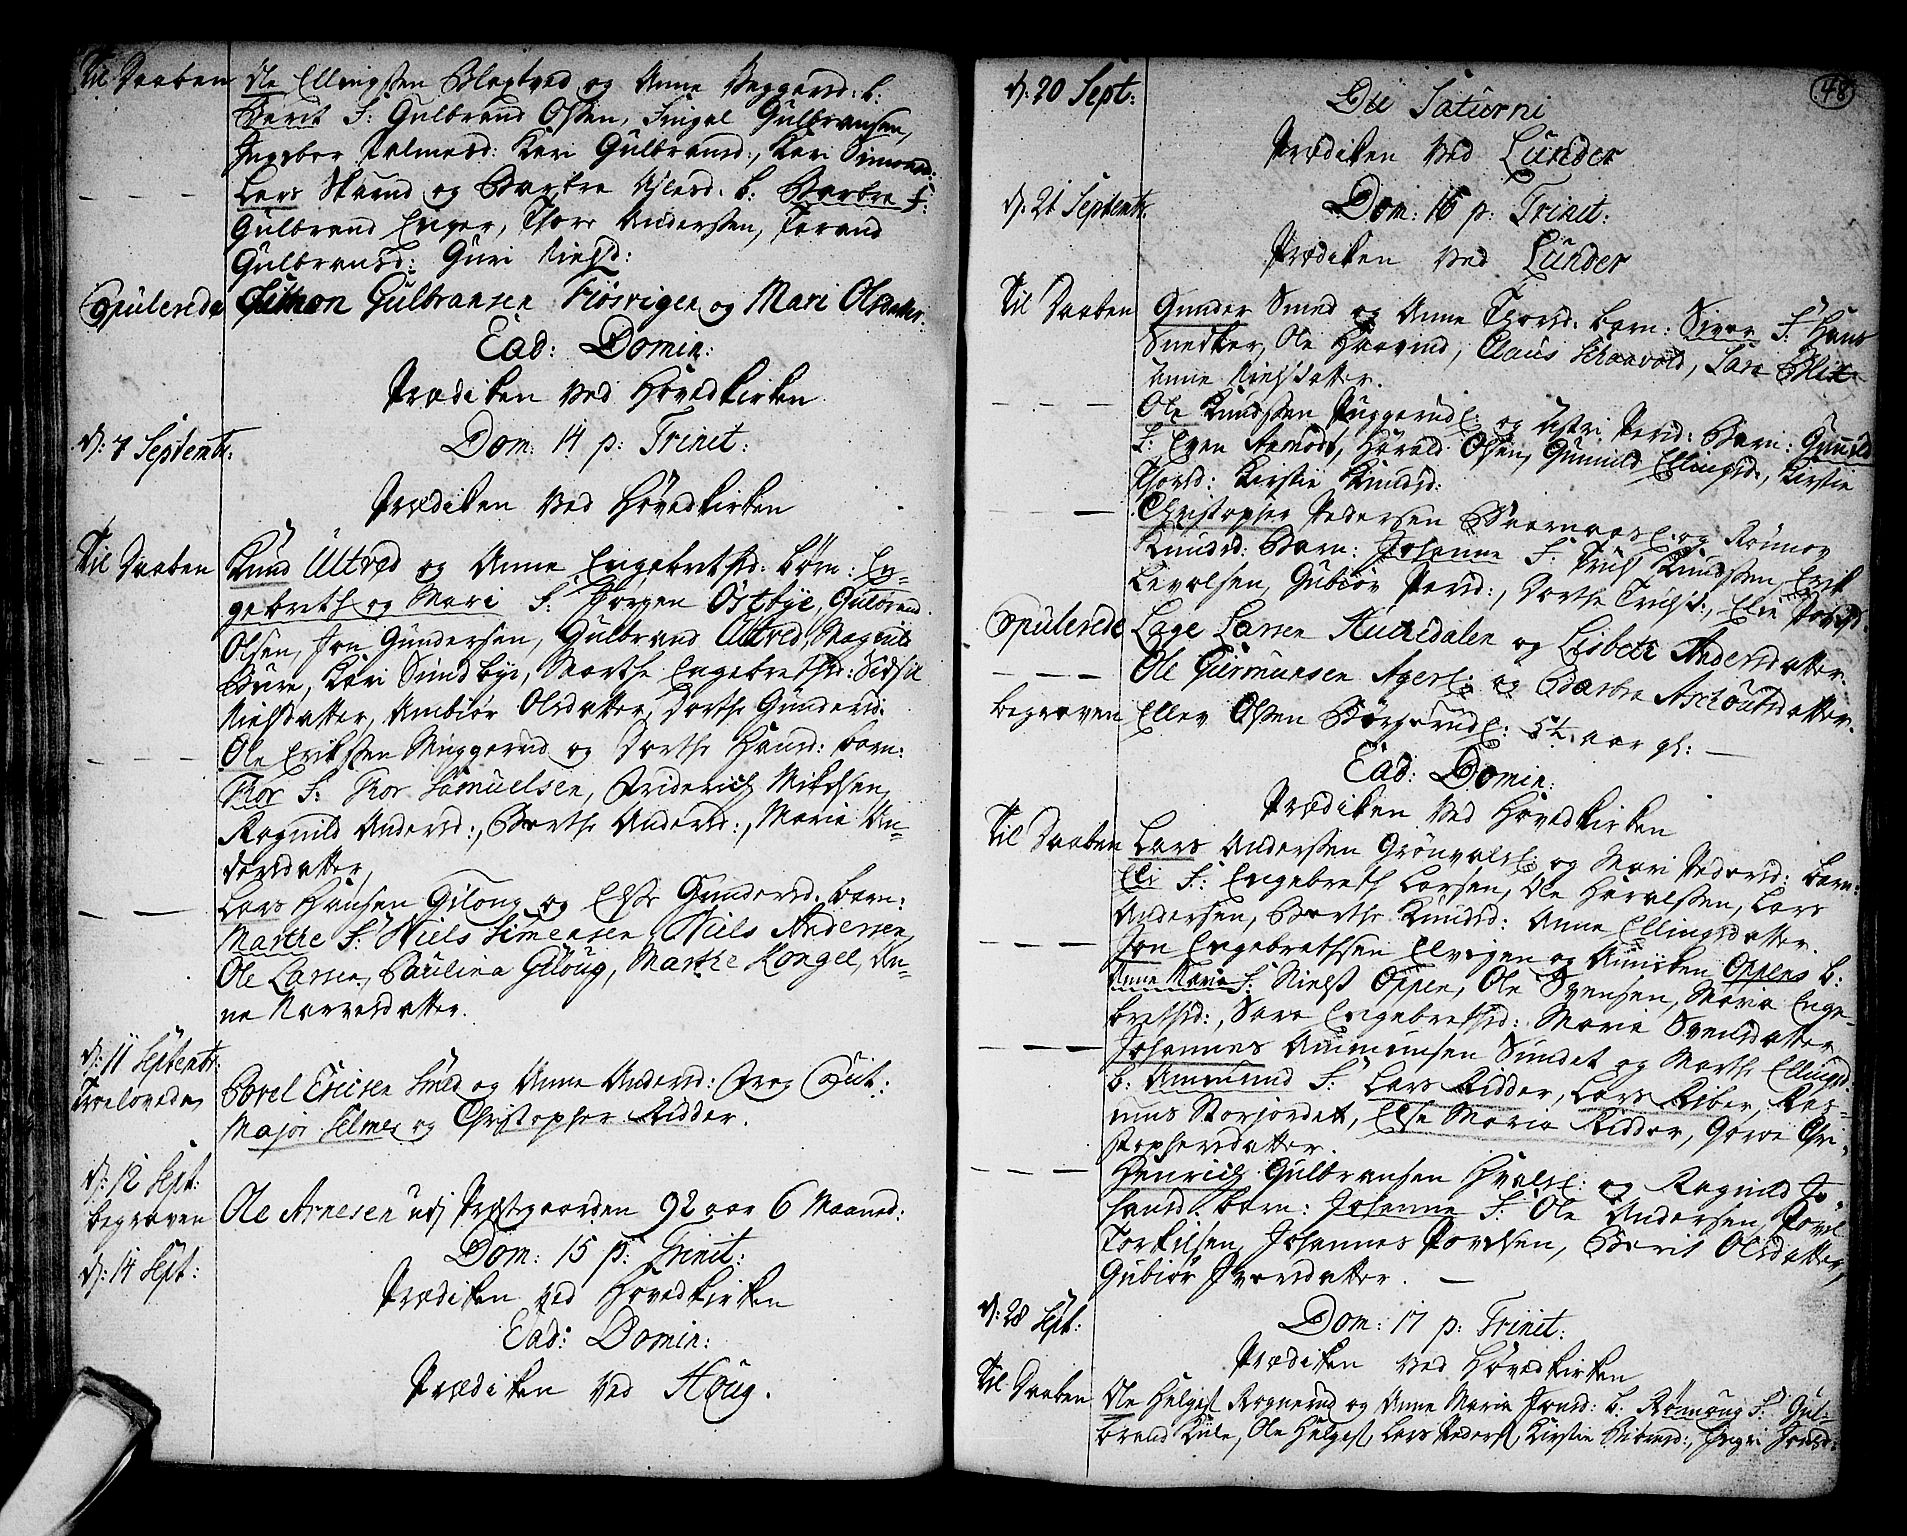 Til Daaben Ole Ellingssen Blegtved og Anne Beggersd: b:
Berit F: Gulbrand Olssen, Fingal Gulbransen,
Ingebor Palmesd: Kari Gulbransd:, Kari Simensd:
— — Lars Skarud og Barbra Aslesd. b: Barbra F:
Gulbrand Enger, Thore Anderssen, Torand
Gulbransd: Guri Nielsd:
Copulerede Simon Gulbransen Fiøsvigen og Mari Olsdatter.
Ead: Domin:
Prædiken ved Hovedkirken
d: 7 Septembr: Dom: 14 p: Trinit:
Prædiken ved Hovedkirken
Til Daaben Knud Ultved og Anne Engebrethsd: børn: En-
gebreth og Mari F: Jørgen Østbye, Gulbrand
Olsen, Jon Gundersen, Gulbrand Ultved, Magnild
Bure, Kari Sundbye, Marthe Engebrethsd: Sidsel
Nielsdatter, Ambiør Olsdatter, Dorthe Gundersd:
— — — Ole Erikssen Muggerud og Dorthe Hansd: barn:
Thor F: Thor Samuelsen, Friderich Mikelsen,
Ragnild Andersd:, Berthe Andersd:, Maria An-
dersdatter,
— — Lars Hansen Gisloug og Else Gundersd: barn:
Marthe F: Niels Simensen, Niels Andersen,
Ole Larsen, Paulina Gisloug, Marthe Kongel, An-
ne Narvesdatter.
d: 11 Septembr:
Troelovede Povel Ericsen Smed og Anne Andersd: Prog Caut:
Major Selmer og Christopher Ridder.
d: 12 Sept:
begraven Ole Arnesen udj Præstgaarden 92 aar 6 Maaned:
d: 14 Sept: Dom: 15 p: Trinit:
Prædiken ved Hovedkirken
Ead: Domin:
Prædiken ved Houg.
48
d: 20 Sept: Die Saturni
Prædiken ved Lunder
d: 21 Septembr: Dom: 16 p: Trinit:
Prædiken ved Lunder
Til Daaben Gunder Smed og Anne Thorsd: barn: Siver F: Hans
Snedker, Ole Haavrud, Claus Schaavold, Sara Blix
Anne Nielsdatter.
— — — Ole Knudssen Puggerud E: og Astri Persd: Barn: Gunild
F: Even Aamodt, Harald Olsen, Gunnild Ellingsd:, Kirstie
Thorsd: Kirstie Knudsd:
— — Christopher Pedersen Baarnaas E: og Rønnov
Knudsd: Barn: Johanne F: Truls Knudssen, Erik
Levolsen, Gubiør Persd:, Dorthe Trulsd:, Elie Povelsd:
Copulerede Lage Larsen Hueedalen og Lisbete Andersdatter.
— — — Ole Gurmunsen Ager E: og Barbra Aschoutsdatter.
begraven Ellev Olssen Børgerud E: 5½ aar gl: —
Ead: Domin:
Prædiken ved Hovedkirken
Til Daaben Lars Anderssen Grønvols E: og Mari Pedersd: barn:
Eli F: Engebreth Larsen, Ole Haralssen, Lars
Andersen, Berthe Knudsd: Anne Ellingsdatter.
— — — Jon Engebrethsen Elvigen og Anniken Oppens b:
Anne Maria F: Niels Oppen, Ole Svensen, Maria Enge-
brethsd:, Sara Engebrethsd: Maria Svensdatter
— — — Johannes Ammunsen Sundet og Marthe Ellingsd:
b: Ammund F: Lars Ridder, Lars Riber, Ras-
mus Storjordet, Else Maria Ridder, Goroe Chri-
stophersdatter.
— — — Henrich Gulbransen Hvals E: og Ragnild Jo-
hansd: barn: Johanne F: Ole Andersen, Povel
Torkilsen, Johannes Povelsen, Berit Olsdatter,
Gubiør Iversdatter. —
d: 28 Sept: Dom: 17 p: Trinit:
Prædiken ved Hovedkirken
Til Daaben Ole Helges: Rognerud og Anne Maria Jonsd: b: Rønnoug F: Gul-
brand Kule, Ole Helges: Lars Peders: Kirstie Jonsd: